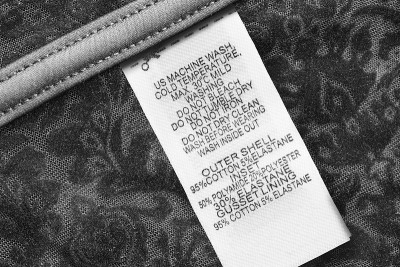 US MACHINE WASH,
COLD TEMPERATURE,
MAX. 30C MILD
WASHING
DO NOT BLEACH
DO NOT TUMBLE DRY
DO NOT IRON
DO NOT DRY CLEAN
WASH BEFORE WEARING
WASH INSIDE OUT
OUTER SHELL
95%COTTON 5%ELASTANE
INSET
50% POLYAMIDE 20% POLYESTER
30% ELASTANE
GUSSET LINING
95% COTTON 5% ELASTANE